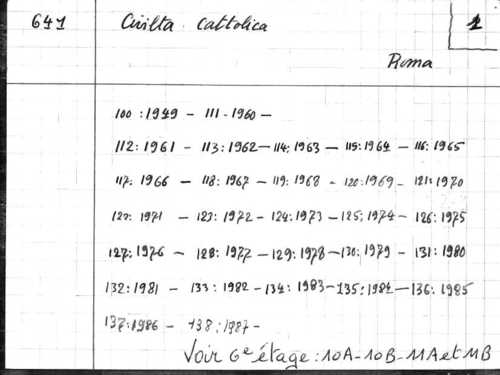 641 Civilta Cattolica 1
Roma
100:1949 - 111-1960 -
112:1961 - 113:1962 - 114:1963 - 115:1964 - 116:1965
117:1966 - 118:1967 - 119:1968 - 120:1969 - 121:1970
122:1971 - 123:1972 - 124:1973 - 125:1974 - 126:1975
127:1976 - 128:1977 - 129:1978 - 130:1979 - 131:1980
132:1981 - 133:1982 - 134:1983 - 135:1984 - 136:1985
137:1986 - 138:1987 -
Voir 6e étage : 10A - 10B - 11A et 11B